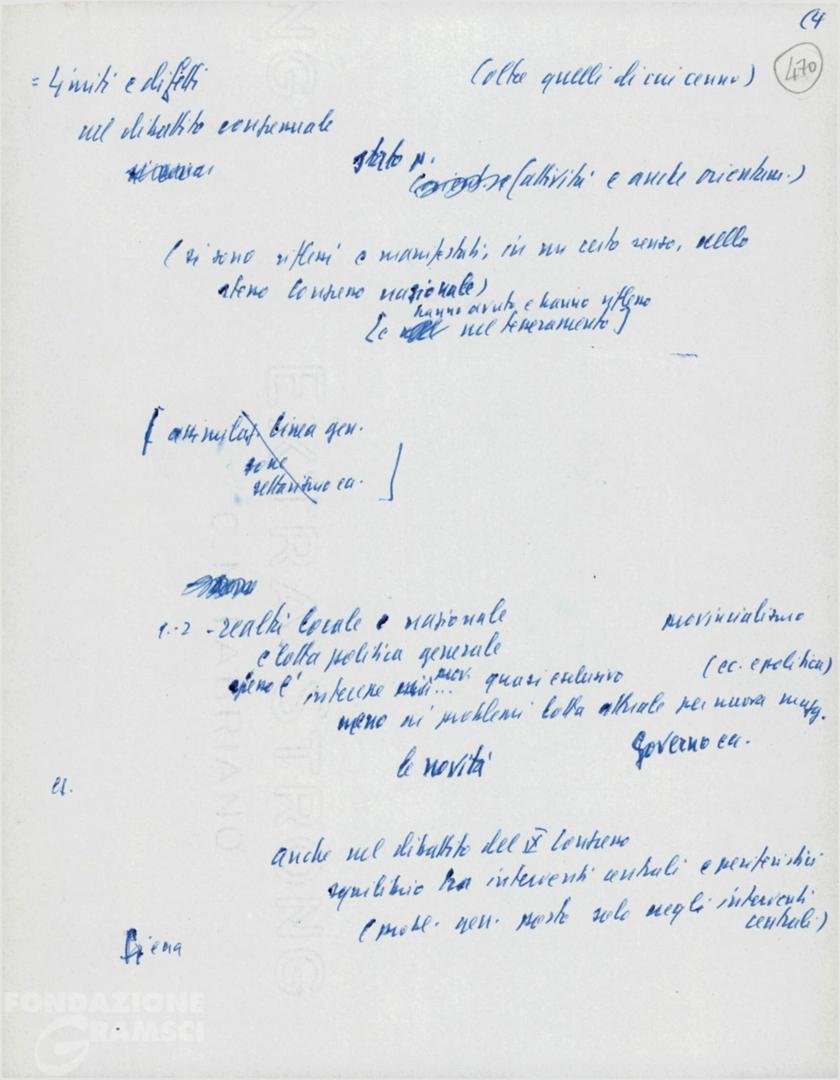 (4
470
= Limiti e difetti (oltre quelli di cui cenno)
nel dibattito congressuale
stato p.
(attività e anche orientam.)
(si sono riflessi e manifestati, in un certo senso, nello
stesso Congresso nazionale)
hanno avuto e hanno riflesso
[e nel tesseramento]
[ assimilaz. linea gen.
zone
settarismo ecc. ]
1.-2 - realtà locale e nazionale provincialismo
e lotta politica generale (ec. e politica)
spesso c'è intervene prov. quasi esclusivo
meno sui problemi lotta attuale per nuova magg.
governo ecc.
le novità
anche nel dibattito del IX Congresso
squilibrio tra interventi centrali e periferici
(probl. gen. posto solo negli interventi
centrali)
Siena
FONDAZIONE
GRAMSCI
EXTRA STRONG
FABRIANO